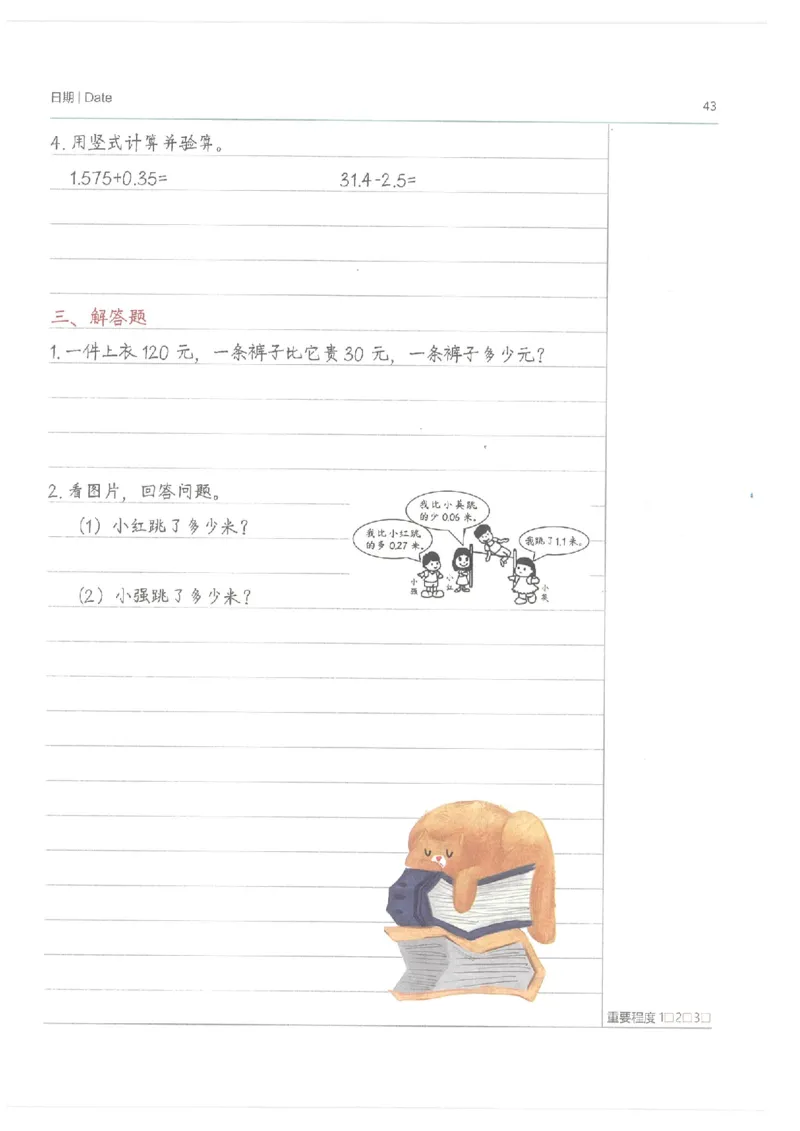 日期 | Date
43
4. 用竖式计算并验算。
1.575+0.35=
31.4-2.5=
三、解答题
1. 一件上衣 120 元，一条裤子比它贵 30 元，一条裤子多少元？
2. 看图片，回答问题。
（1）小红跳了多少米？
（2）小强跳了多少米？
我比小英跳
的少 0.06 米。
我比小红跳
的多 0.27 米。
我跳了1.1米。
小强
小红
小英
重要程度 1□2□3□